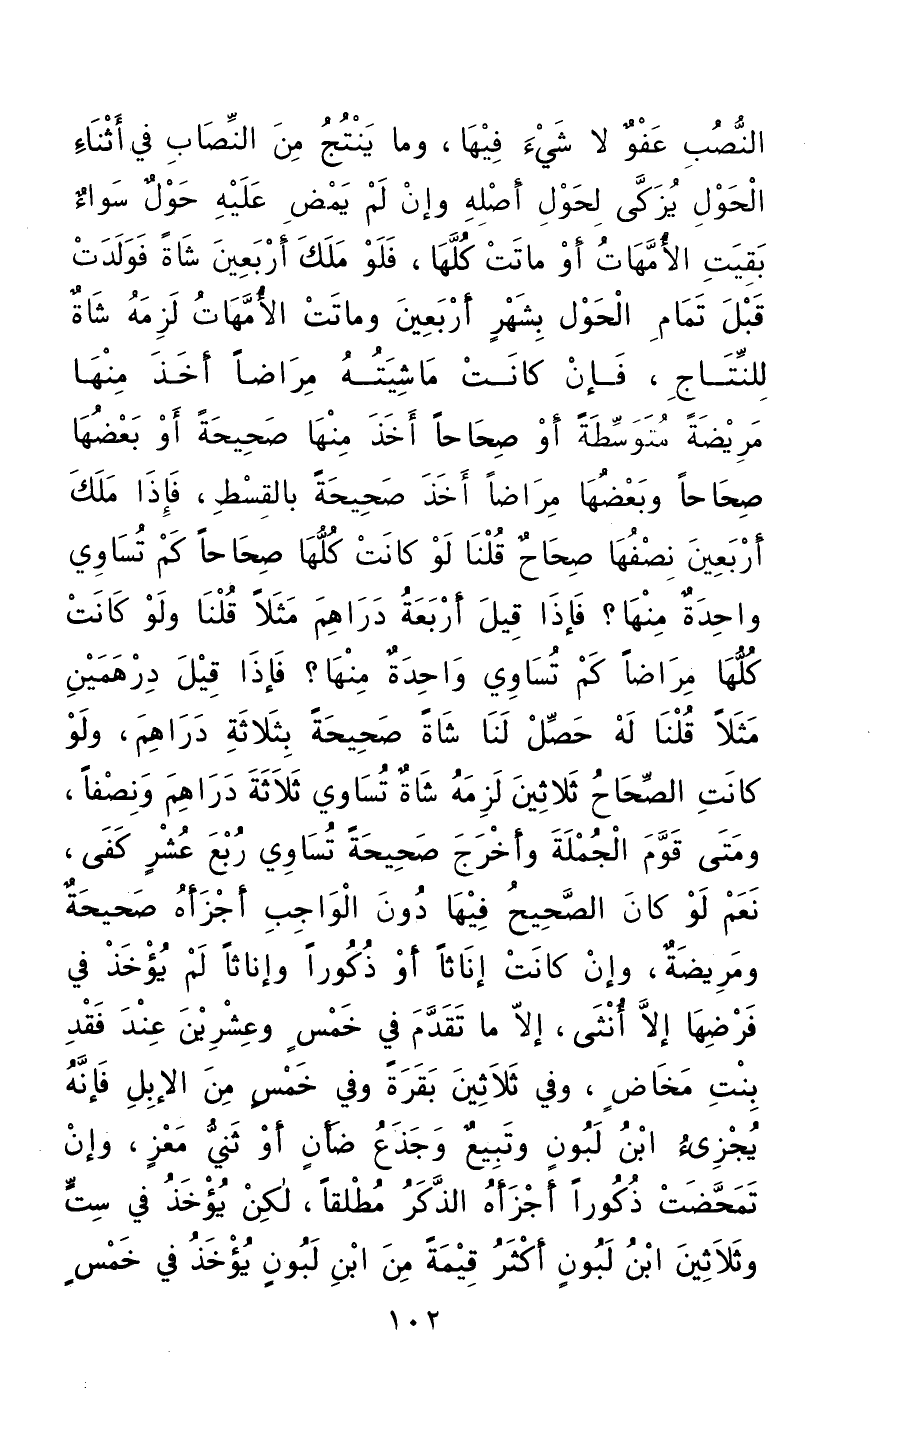 النُّصُبِ عَفْوٌ لا شَيْءَ فِيْهَا ، وما يَنْتُجُ مِنَ النِّصَابِ في أَثْنَاءِ
الْحَوْلِ يُزَكَّى لِحَوْلِ أَصْلِهِ وإنْ لَمْ يَمْضِ عَلَيْهِ حَوْلٌ سَواءٌ
بَقِيَتِ الأُمَّهَاتُ أوْ ماتَتْ كُلُّهَا ، فَلَوْ مَلَكَ أَرْبَعِينَ شَاةً فَوَلَدَتْ
قَبْلَ تَمَامِ الْحَوْلِ بِشَهْرٍ أَرْبَعِينَ وماتَتْ الأُمَّهَاتُ لَزِمَهُ شاةٌ
للنِّتَـاجِ ، فَـإنْ كانَـتْ مَاشِيَتُـهُ مِرَاضـاً أخَـذَ مِنْهَـا
مَرِيْضَةً مُتَوَسِّطَةً أوْ صِحَاحاً أَخَذَ مِنْهَا صَحِيحَةً أَوْ بَعْضُهَا
صِحَاحاً وبَعْضُهَا مِرَاضاً أَخَذَ صَحِيحَةً بالقِسْطِ ، فَإِذَا مَلَكَ
أَرْبَعِينَ نِصْفُهَا صِحَاحٌ قُلْنَا لَوْ كانَتْ كُلُّهَا صِحَاحاً كَمْ تُسَاوِي
واحِدَةٌ مِنْهَا ؟ فَإِذَا قِيلَ أَرْبَعَةُ دَرَاهِمَ مَثَلاً قُلْنَا ولَوْ كَانَتْ
كُلُّهَا مِرَاضاً كَمْ تُسَاوِي وَاحِدَةٌ مِنْهَا ؟ فَإذَا قِيْلَ دِرْهَمَيْنِ
مَثَلاً قُلْنَا لَهْ حَصِّلْ لَنَا شَاةً صَحِيحَةً بِثَلاثَةِ دَرَاهِمَ ، ولَوْ
كانَتِ الصِّحَاحُ ثَلاثِينَ لَزِمَهُ شَاةٌ تُسَاوِي ثَلاَثَةَ دَرَاهِمَ وَنِصْفاً ،
ومَتَى قَوَّمَ الْجُمْلَةَ وأَخْرَجَ صَحِيحَةً تُسَاوِي رُبْعَ عُشْرٍ كَفَى ،
نَعَمْ لَوْ كانَ الصَّحِيحُ فِيْهَا دُونَ الْوَاجِبِ أَجْزَأَهُ صَحيحَةٌ
ومَرِيضَةٌ ، وإنْ كانَتْ إنَاثاً أوْ ذُكُوراً وإناثاً لَمْ يُؤْخَذْ في
فَرْضِهَا إلاَّ أُنْثَى ، إلاّ ما تَقَدَّمَ في خَمْسٍ وعِشْرِيْنَ عِنْدَ فَقْدِ
بِنْتِ مَخَاضٍ ، وفي ثَلاَثِينَ بَقَرَةً وفي خَمْسٍ مِنَ الإبِلِ فَإنَّهُ
يُجْزِىءُ ابْنُ لَبُونٍ وتَبِيعٌ وَجَذَعُ ضَأنٍ أوْ ثَنِيُّ مَعْزٍ ، وإنْ
تَمَحَّضَتْ ذُكُوراً أَجْزَأهُ الذَّكَرُ مُطْلقاً ، لٰكِنْ يُؤْخَذُ في سِتٍّ
وثَلاَثِينَ ابْنُ لَبُونٍ أَكْثَرُ قِيْمَةً مِنَ ابْنِ لَبُونٍ يُؤْخَذُ في خَمْسٍ
١٠٢